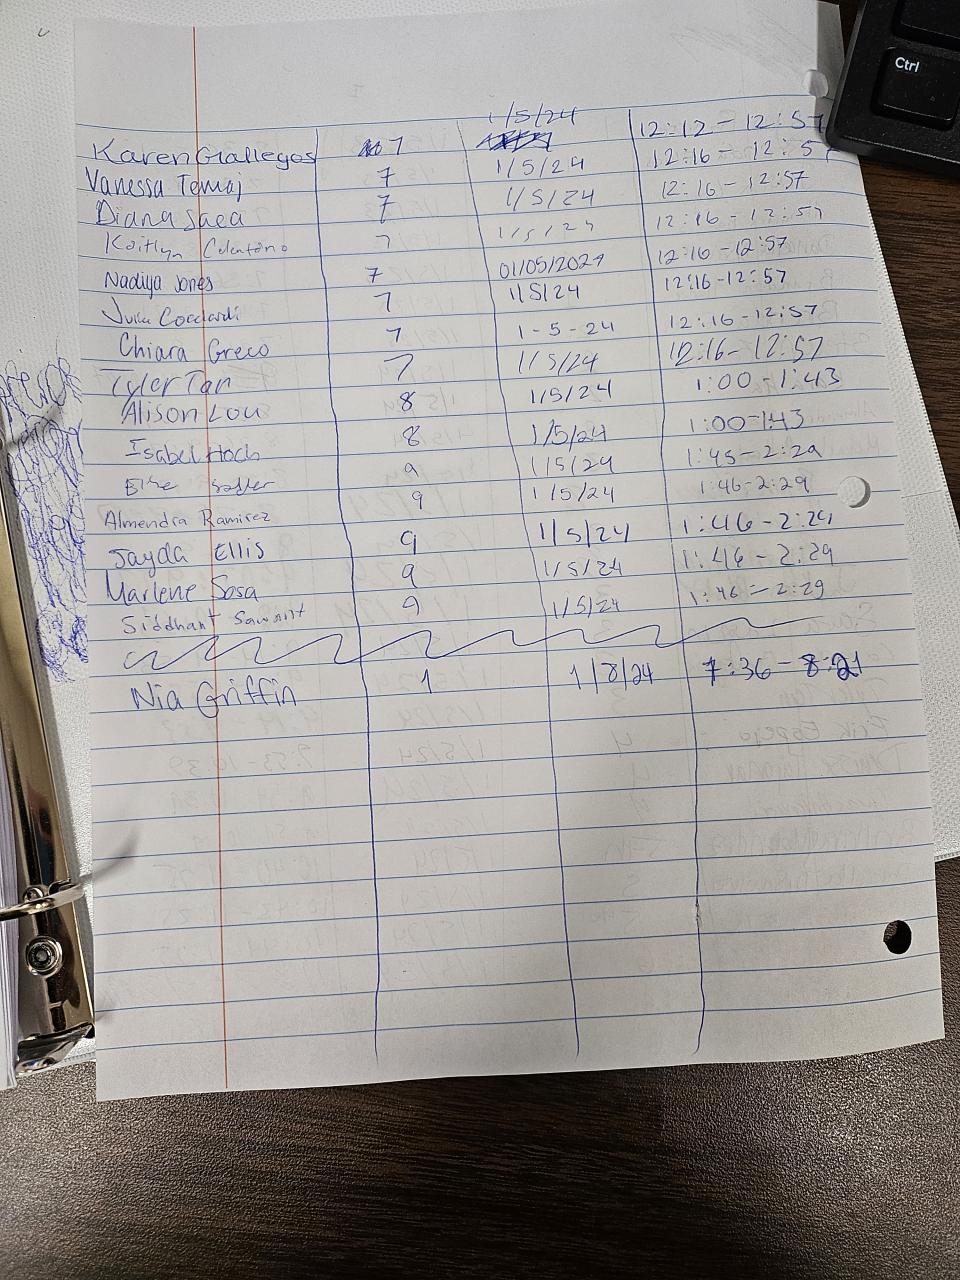 Ctrl
Karen Gallegos 7 1/5/24 12:12 - 12:57
Vanessa Temaj 7 1/5/24 12:16 - 12:57
Diana Saea 7 1/5/24 12:16 - 12:57
Kaitlyn 7 1/5/24 12:16 - 12:57
Nadiya Jones 7 01/05/2024 12:16 - 12:57
Julia 7 1/5/24 12:16 - 12:57
Chiara Greco 7 1-5-24 12:16 - 12:57
Tyler Tan 7 1/5/24 12:16 - 12:57
Alison Lou 8 1/5/24 1:00 - 1:43
Isabel Hoch 8 1/5/24 1:00 - 1:43
9 1/5/24 1:45 - 2:29
Almendra Ramirez 9 1/5/24 1:46 - 2:29
Jayda Ellis 9 1/5/24 1:46 - 2:29
Marlene Sosa 9 1/5/24 1:46 - 2:29
Siddhant Sawant 9 1/5/24 1:46 - 2:29
Nia Griffin 1 1/8/24 7:36 - 8:21